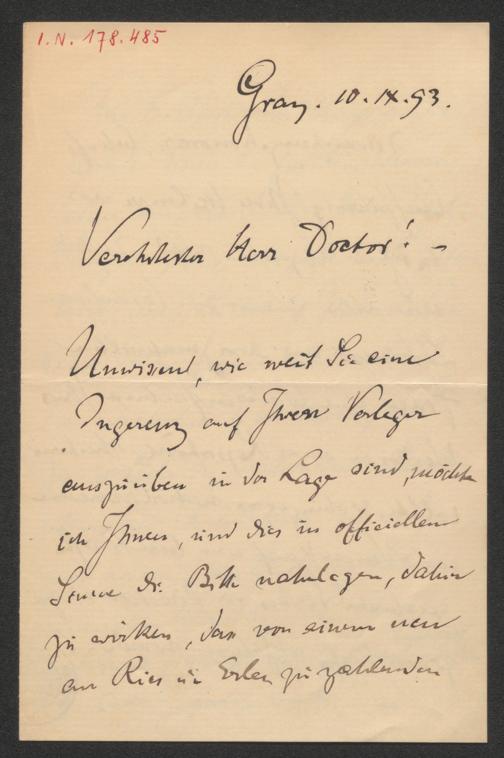 I.N. 178.485
Graz. 10.IX.93.
Verehrtester Herr Doctor! –
Unwissend, wie weit Sie eine
Ingerenz auf Ihren Verleger
auszuüben in der Lage sind, möchte
ich Ihnen, und dies im officiellen
Sinne die Bitte nahelegen, dahin
zu wirken, dass von einem neu
an Ries u Erler zu zahlenden